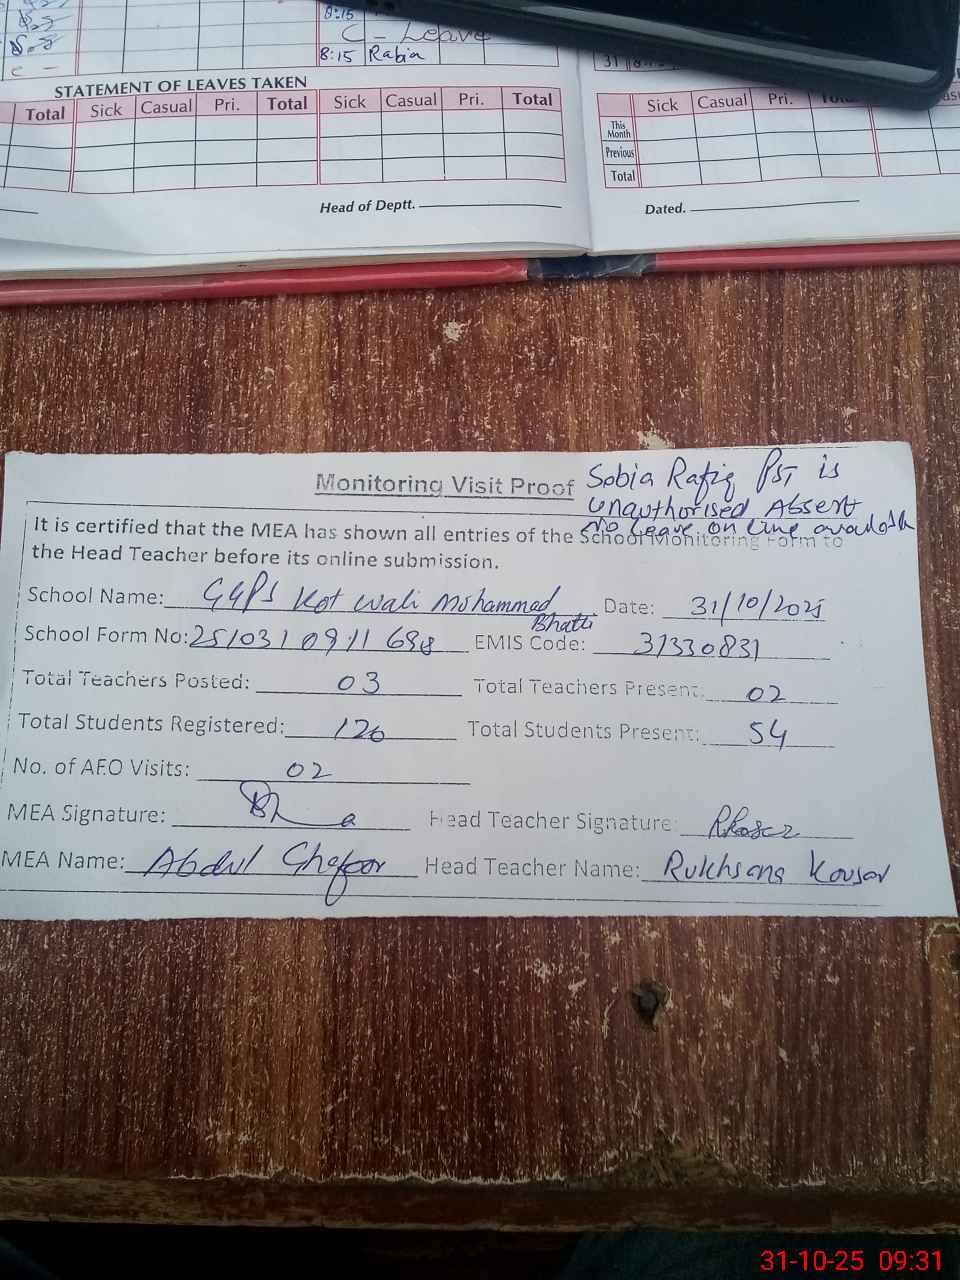 8:15
C - Leave
8:15 Rabia
31
STATEMENT OF LEAVES TAKEN
Total Sick Casual Pri. Total Sick Casual Pri. Total
Sick Casual Pri. Total
This Month
Previous
Total
Head of Deptt.
Dated.
Monitoring Visit Proof
Sobia Rafiq PST is
unauthorised Absent
No leave on line available
It is certified that the MEA has shown all entries of the School Monitoring Form to
the Head Teacher before its online submission.
School Name: GGPS Kot Wali Mohammad Bhatti Date: 31/10/2025
School Form No: 25/031 0911 698 EMIS Code: 31330831
Total Teachers Posted: 03 Total Teachers Present: 02
Total Students Registered: 126 Total Students Present: 54
No. of AEO Visits: 02
MEA Signature: Head Teacher Signature:
MEA Name: Abdul Ghafoor Head Teacher Name: Rukhsana Kousar
31-10-25 09:31